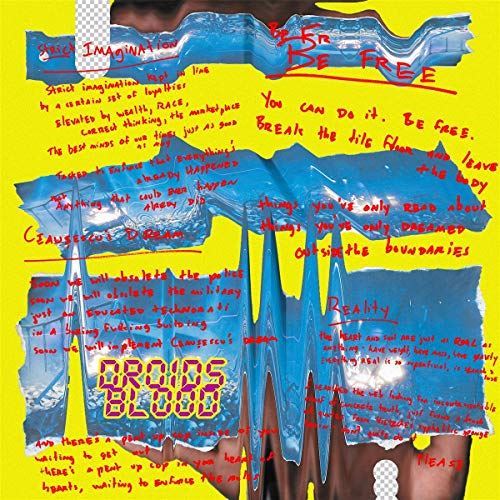 Strict Imagination
Strict imagination kept in line
by a certain set of loyalties
Elevated by wealth, RACE,
correct thinking, the marketplace
The best minds of our time, just as good
as any
Tasked to Enforce that everything's
already HAPPENED
that Anything that could EVER happen
Already Did
Ciausescu's DREAM
Soon we will obsolete the police
soon we will obsolete the military
just an EDUCATED technorati
in a fucking building
Soon we will implement Causescu's DREAM
DROIDS
BLOOD
And there's a pent up cop inside of you
waiting to get out
there's a pent up cop in your heart of
hearts, waiting to enforce the rules
BE FREE
You can do it. BE FREE.
Break the tile floor and leave
the body
things you've only READ about
things you've only DREAMED
outside the boundaries
Reality
The HEART and soil are just as REAL as
anything - have weight, have mass, have gravity
Everything REAL is so
I searched the web looking for
truth, just
from
PLEASE